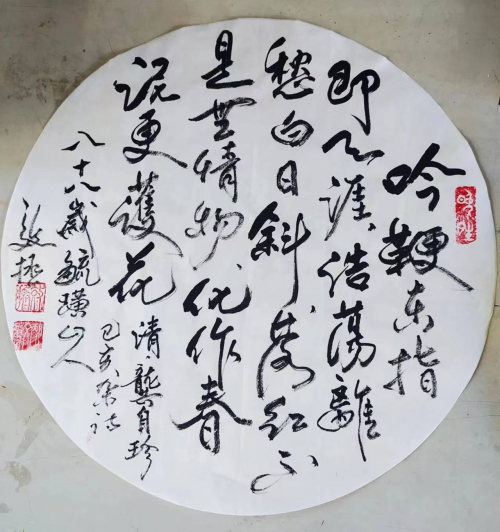 吟鞭东指
即天涯，浩蕩離
愁白日斜，落红不
是無情物，化作春
泥更護花 清、龔自珍
己亥杂诗
八十八歲毓璜山人